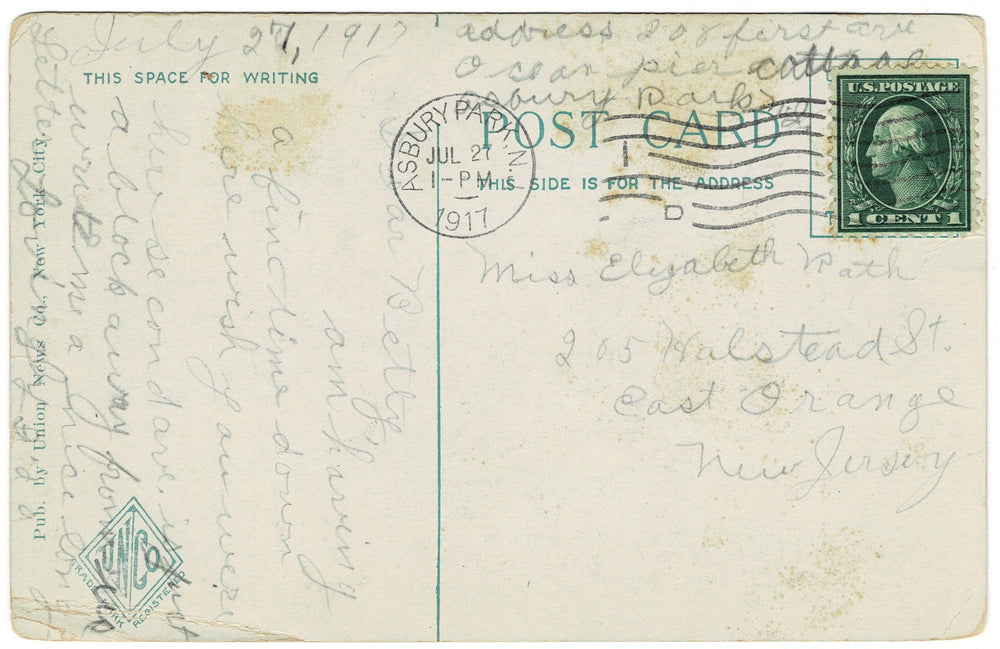 July 27, 1917
THIS SPACE FOR WRITING
Dear Betty
am having
a fine time down
here wish you were
here second ave. is just
a block away from us
write me a nice long
Letter
Pub. by Union News Co., New York City.
UNCO
TRADE MARK REGISTERED
address 208 first ave
Ocean pier cottage
Asbury Park
POST CARD
THIS SIDE IS FOR THE ADDRESS
ASBURY PARK, N.J.
JUL 27
1-PM
1917
U.S. POSTAGE
1 CENT 1
Miss Elizabeth Rath
205 Halstead St.
East Orange
New Jersey